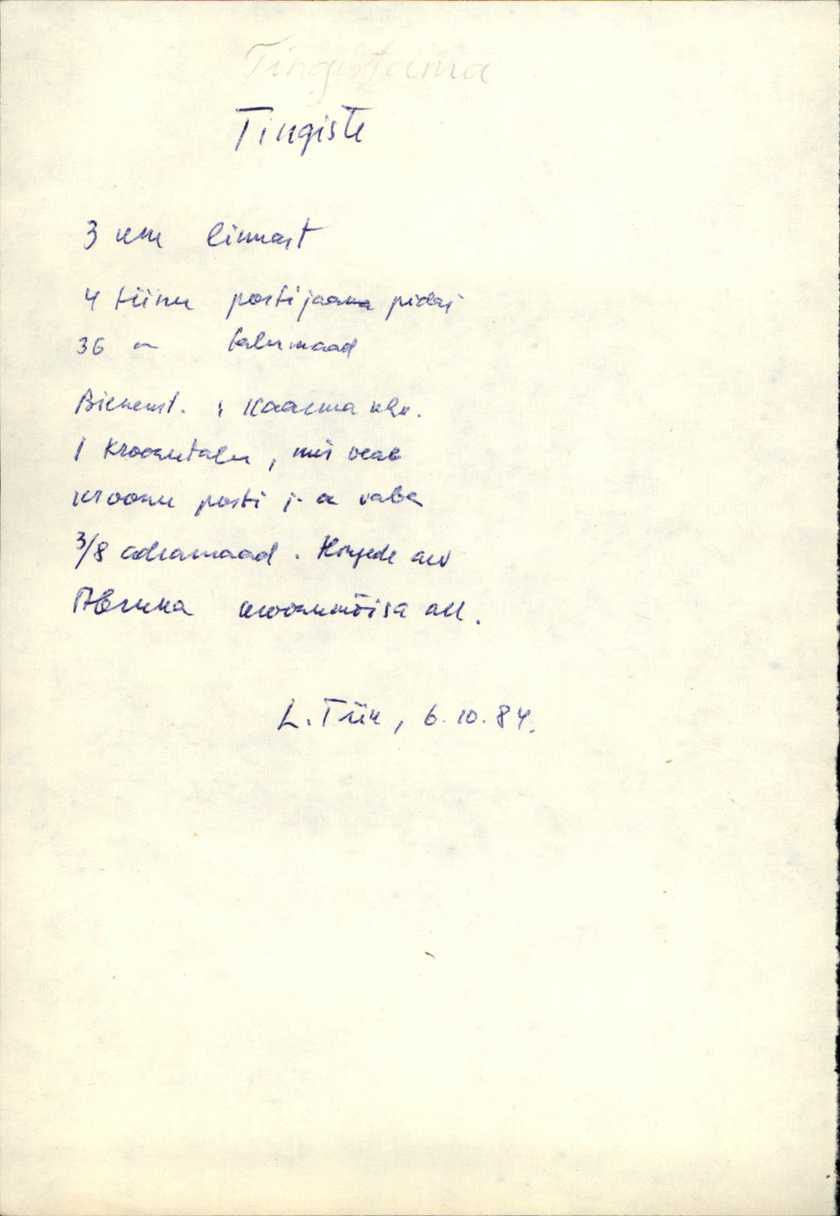 Tingistama
Tingiste
3 km linnast
4 tiinu postijaama pidaj
36 " talumaad
Bienenst. : Kaarma khk.
1 kroonutalu, mis veab
kroonu posti j. a vaba
3/8 adramaad. Kirjade arv
Abruka kroonumõisa all.
L. Tiik, 6.10.84.